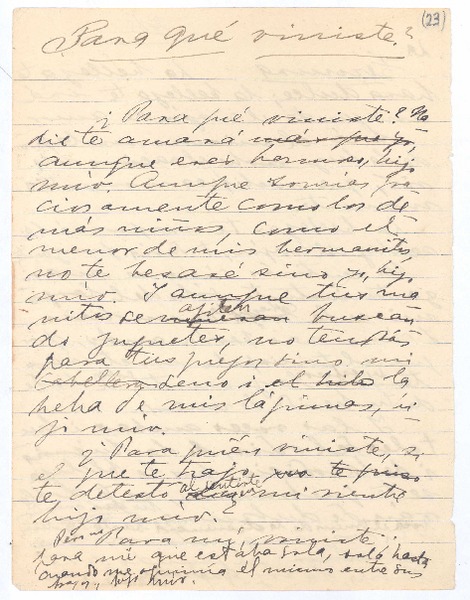 (23)
Para qué viniste?
¿Para qué viniste? Na
die te amará más que yo,
aunque eres hermoso, hijo
mio. Aunque sonrías gra
ciosamente como los de
más niños, como el
menor de mis hermanitos
no te besaré sino yo, hijo
mio. I aunque tus ma
nitos se agiten buscan
do juguetes, no tendrás
para tus juegos sino mi
seno i el hilo la
heba de mis lágrimas, hi
jo mio.
¿Para qué viniste, si
el que te trajo, te
te detestó al sentirte en mi vientre
hijo mio.
Pero no Para mí viniste;
para mí que estaba sola, sola hasta
cuando me oprimía él mismo entre sus
brazos, hijo mio.